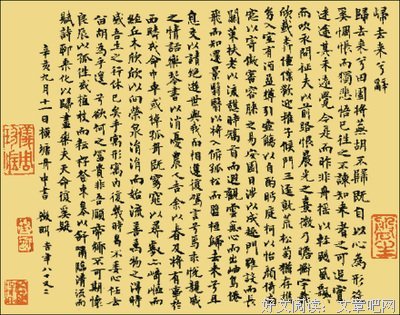 歸去來兮辭
歸去來兮田園將蕪胡不歸既自以心為形役
奚惆悵而獨悲悟已往之不諫知來者之可追實
迷途其未遠覺今是而昨非舟遙遙以輕颺風飄飄
而吹衣問征夫以前路恨晨光之熹微乃瞻衡宇載
欣載奔僮僕歡迎稚子候門三徑就荒松菊猶存攜
幼入室有酒盈樽引壺觴以自酌眄庭柯以怡顏倚南
窗以寄傲審容膝之易安園日涉以成趣門雖設而長
關策扶老以流憩時矯首而遐觀雲無心而出岫鳥倦
飛而知還景翳翳以將入撫孤松而盤桓歸去來兮且
息交以請絕遊世與我而相違復駕言兮焉求悅親戚
之情話樂琴書以消憂農人告余以春及將有事於
西疇或命巾車或棹孤舟既窈窕以尋壑亦崎嶇而
經丘木欣欣以向榮泉涓涓而始流善萬物之得時
感吾生之行休已矣乎寓形宇內復幾時曷不委心任去
留胡為乎遑遑兮欲何之富貴非吾願帝鄉不可期懷
良辰以孤往或植杖而耘耔登東皋以舒嘯臨清流而
賦詩聊乘化以歸盡樂夫天命復奚疑
辛亥九月十一日橫塘舟中書 徵明
好文阅读：文章吧网